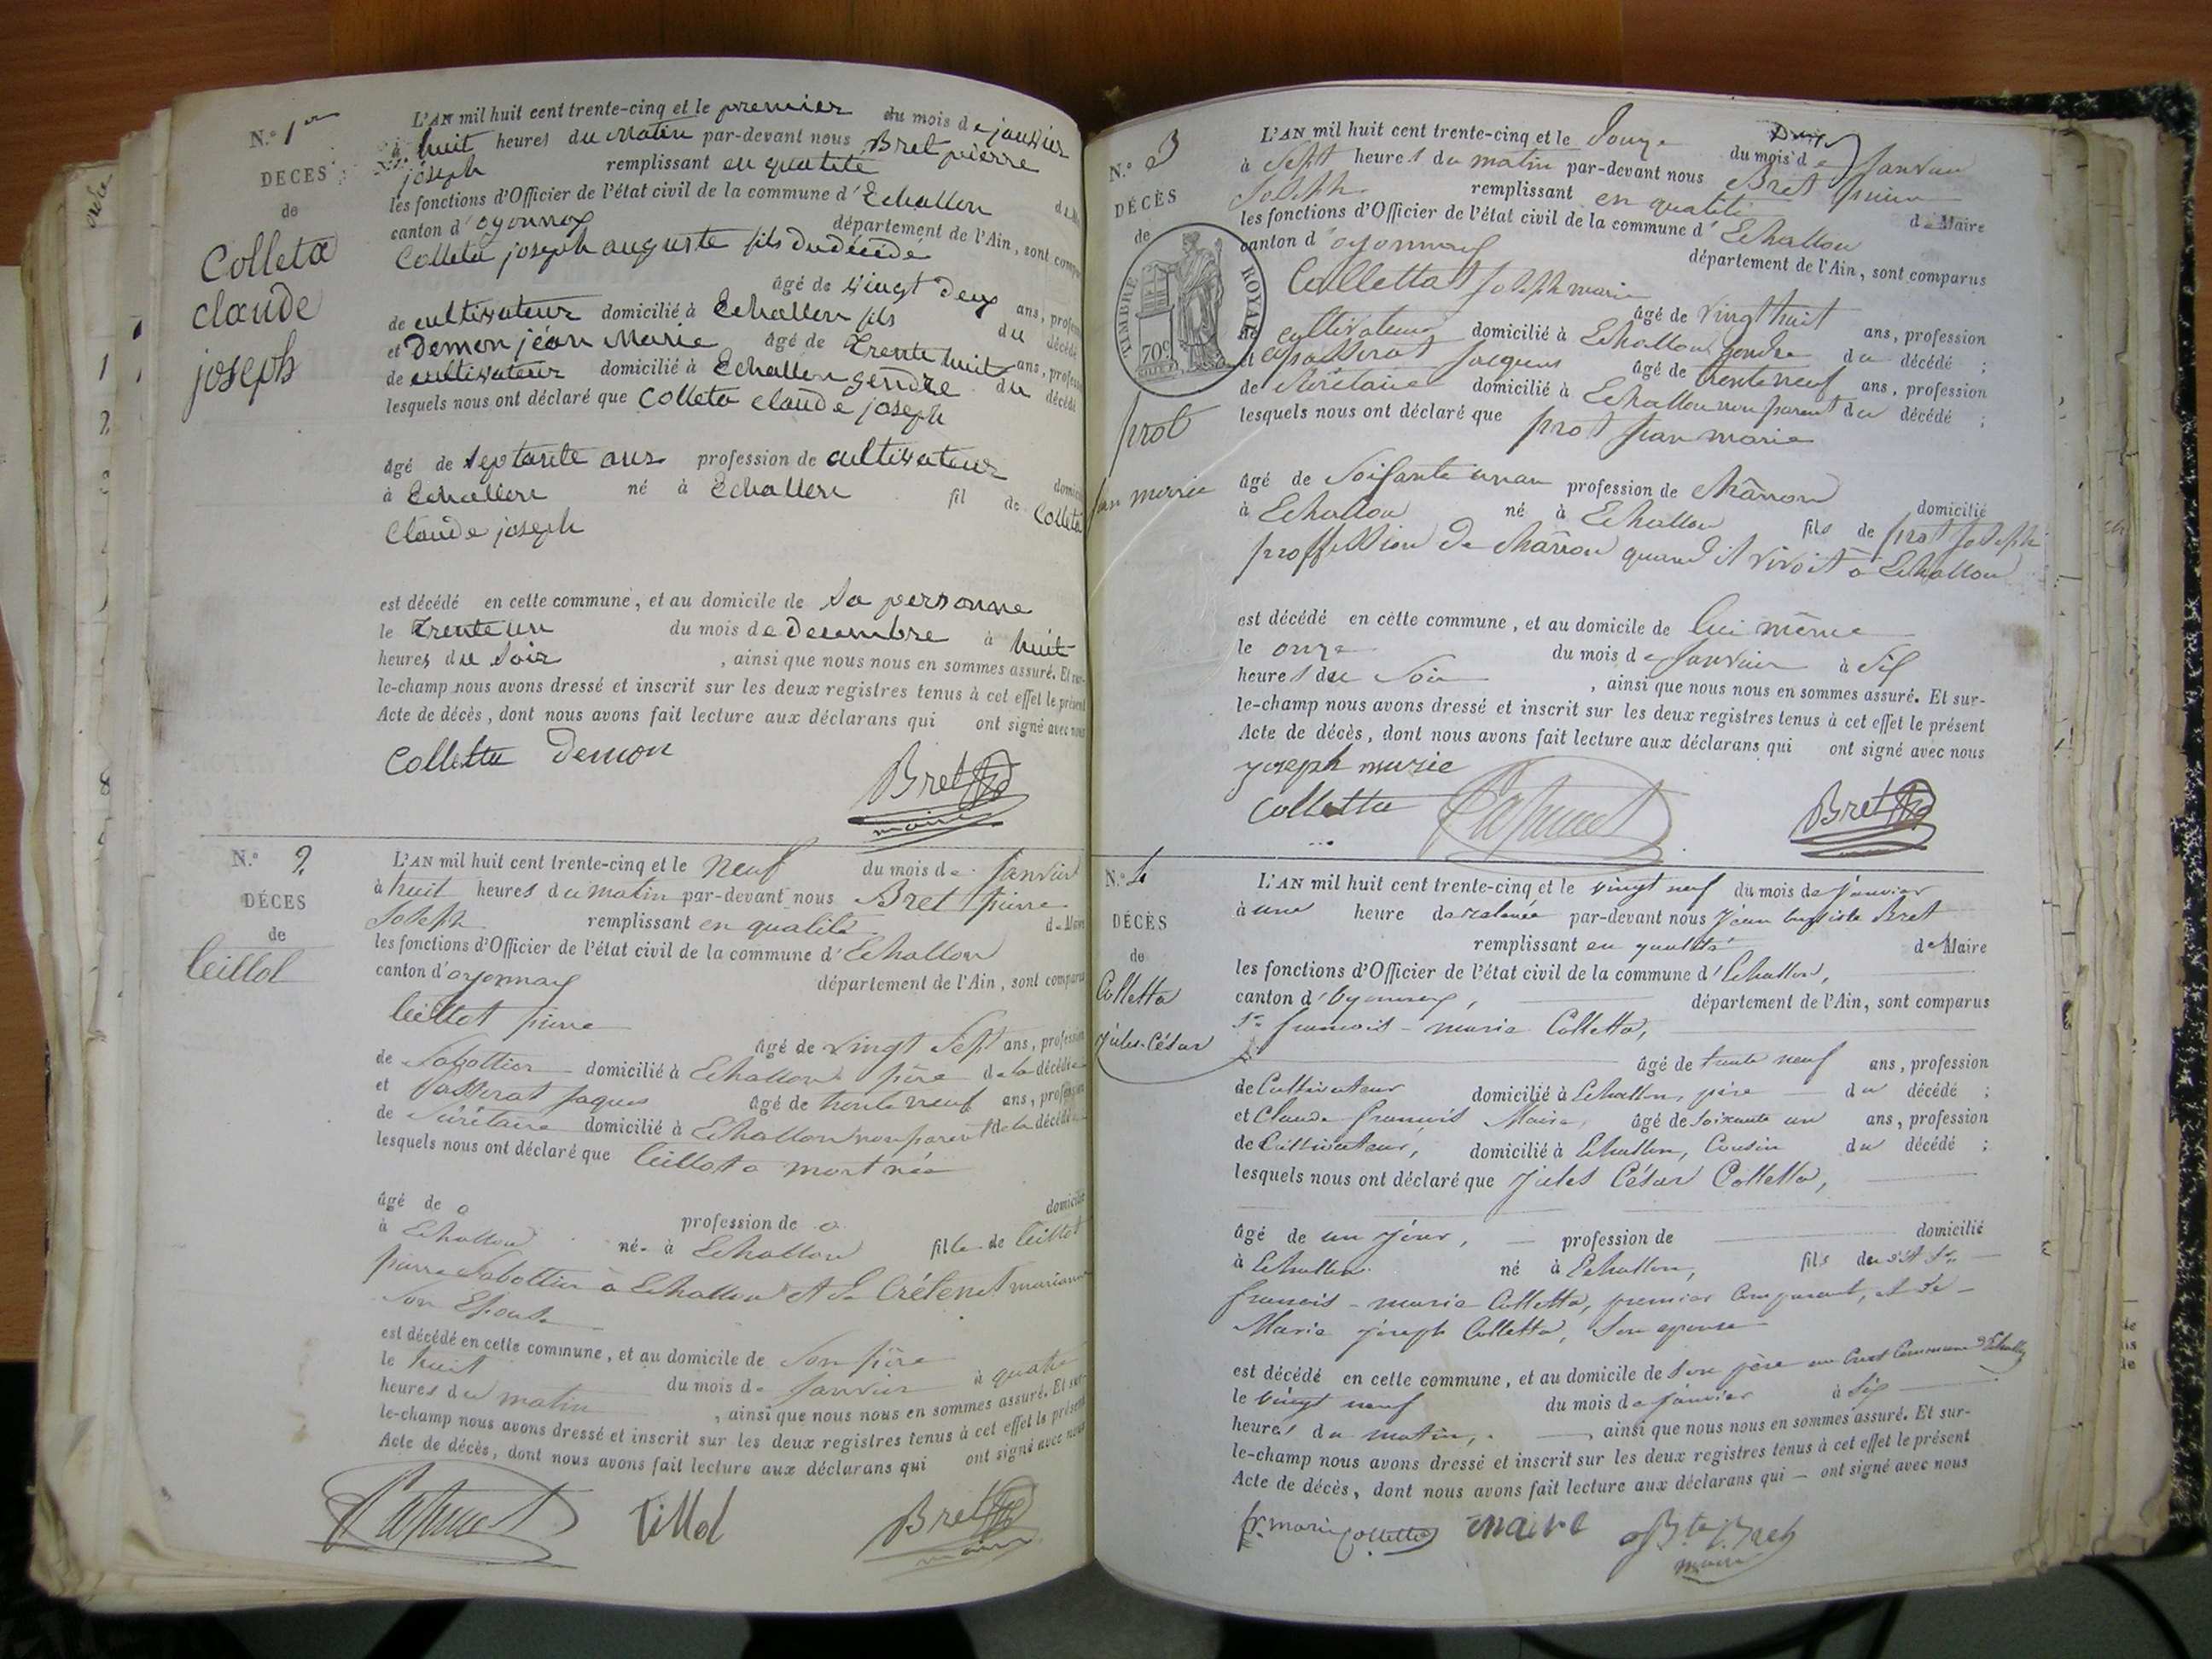 N.° 1er
DECES
de
Colleta
claude
joseph
L'AN mil huit cent trente-cinq et le premier du mois de janvier
à huit heures du Matin par-devant nous Bret pierre
joseph remplissant en qualité
les fonctions d'Officier de l'état civil de la commune d'Echallon
canton d'oyonnax département de l'Ain, sont
Colleta joseph auguste fils du décédé
âgé de vingt deux ans,
de cultivateur domicilié à Echallon fils du décédé
et Demon jéan Marie âgé de trente huit ans,
de cultivateur domicilié à Echallon gendre du décédé
lesquels nous ont déclaré que Colleta claude joseph
âgé de septante ans profession de cultivateur
à Echallon né à Echallon fil de Colleta
Claude joseph
est décédé en cette commune, et au domicile de sa personne
le trente un du mois de decembre à huit
heures du soir , ainsi que nous nous en sommes assuré. Et sur-
le-champ nous avons dressé et inscrit sur les deux registres tenus à cet effet le présent
Acte de décès, dont nous avons fait lecture aux déclarans qui ont signé avec nous
Colletta Demon
Bret
maire
N.° 2
DÉCES
de
Leillot
L'AN mil huit cent trente-cinq et le neuf du mois de Janvier
à huit heures du matin par-devant nous Bret pierre
Joseph remplissant en qualité de Maire
les fonctions d'Officier de l'état civil de la commune d'Echallon
canton d'oyonnax département de l'Ain, sont
Leillot pierre
âgé de vingt sept ans, profession
de Sabottier domicilié à Echallon père de la décédée
et passerat Jaques âgé de trente neuf ans,
de Sécrétaire domicilié à Echallon non parent de la décédée
lesquels nous ont déclaré que Leillot a mort née
âgé de o profession de o
à Echallon née à Echallon fille de Leillot
pierre Sabottier à Echallon et de Crétenet marianne
son Epouse
est décédé en cette commune, et au domicile de son père
le huit du mois de Janvier à quatre
heures du matin , ainsi que nous nous en sommes assuré. Et sur-
le-champ nous avons dressé et inscrit sur les deux registres tenus à cet effet le présent
Acte de décès, dont nous avons fait lecture aux déclarans qui ont signé avec nous
tillol
Bret
maire
N.° 3
DÉCÈS
de
TIMBRE ROYAL
70c
prot
jan marie
L'AN mil huit cent trente-cinq et le Douze du mois de Janvier
à sept heures du matin par-devant nous Bret pierre
Joseph remplissant en qualité de Maire
les fonctions d'Officier de l'état civil de la commune d'Echallon
canton d'oyonnax département de l'Ain, sont comparus
Collettat Joseph marie
âgé de vingt huit ans, profession
de cultivateur domicilié à Echallon gendre du décédé ;
et passerat Jacques âgé de trente neuf ans, profession
de Sécrétaire domicilié à Echallon non parent du décédé ;
lesquels nous ont déclaré que prot jean marie
âgé de soixante un an profession de chârron domicilié
à Echallon né à Echallon fils de prot Joseph
proffession de chârron quand il vivoit à Echallon
est décédé en cette commune, et au domicile de lui même
le onze du mois de Janvier à six
heures du soir , ainsi que nous nous en sommes assuré. Et sur-
le-champ nous avons dressé et inscrit sur les deux registres tenus à cet effet le présent
Acte de décès, dont nous avons fait lecture aux déclarans qui ont signé avec nous
joseph marie
Colletta
Bret
N.° 4
DÉCÈS
de
Colletta
Jules-César
L'AN mil huit cent trente-cinq et le vingt neuf du mois de Janvier
à une heure de relevée par-devant nous Jean baptiste Bret
remplissant en qualité de Maire
les fonctions d'Officier de l'état civil de la commune d'Echallon,
canton d'Oyonnax, département de l'Ain, sont comparus
Sr francois-marie Colletta,
âgé de trente neuf ans, profession
de Cultivateur domicilié à Echallon, père du décédé ;
et Claude francois Maire, âgé de soixante un ans, profession
de Cultivateur, domicilié à Echallon, Cousin du décédé ;
lesquels nous ont déclaré que Jules César Colletta,
âgé de un jour, profession de domicilié
à Echallon né à Echallon, fils du Sr
francois-marie Colletta, premier Comparant, et de
Marie Joseph Colletta, son epouse
est décédé en cette commune, et au domicile de son père
le vingt neuf du mois de Janvier à six
heures du matin, ainsi que nous nous en sommes assuré. Et sur-
le-champ nous avons dressé et inscrit sur les deux registres tenus à cet effet le présent
Acte de décès, dont nous avons fait lecture aux déclarans qui ont signé avec nous
fr. marie Colletta maire Bte Bret
maire